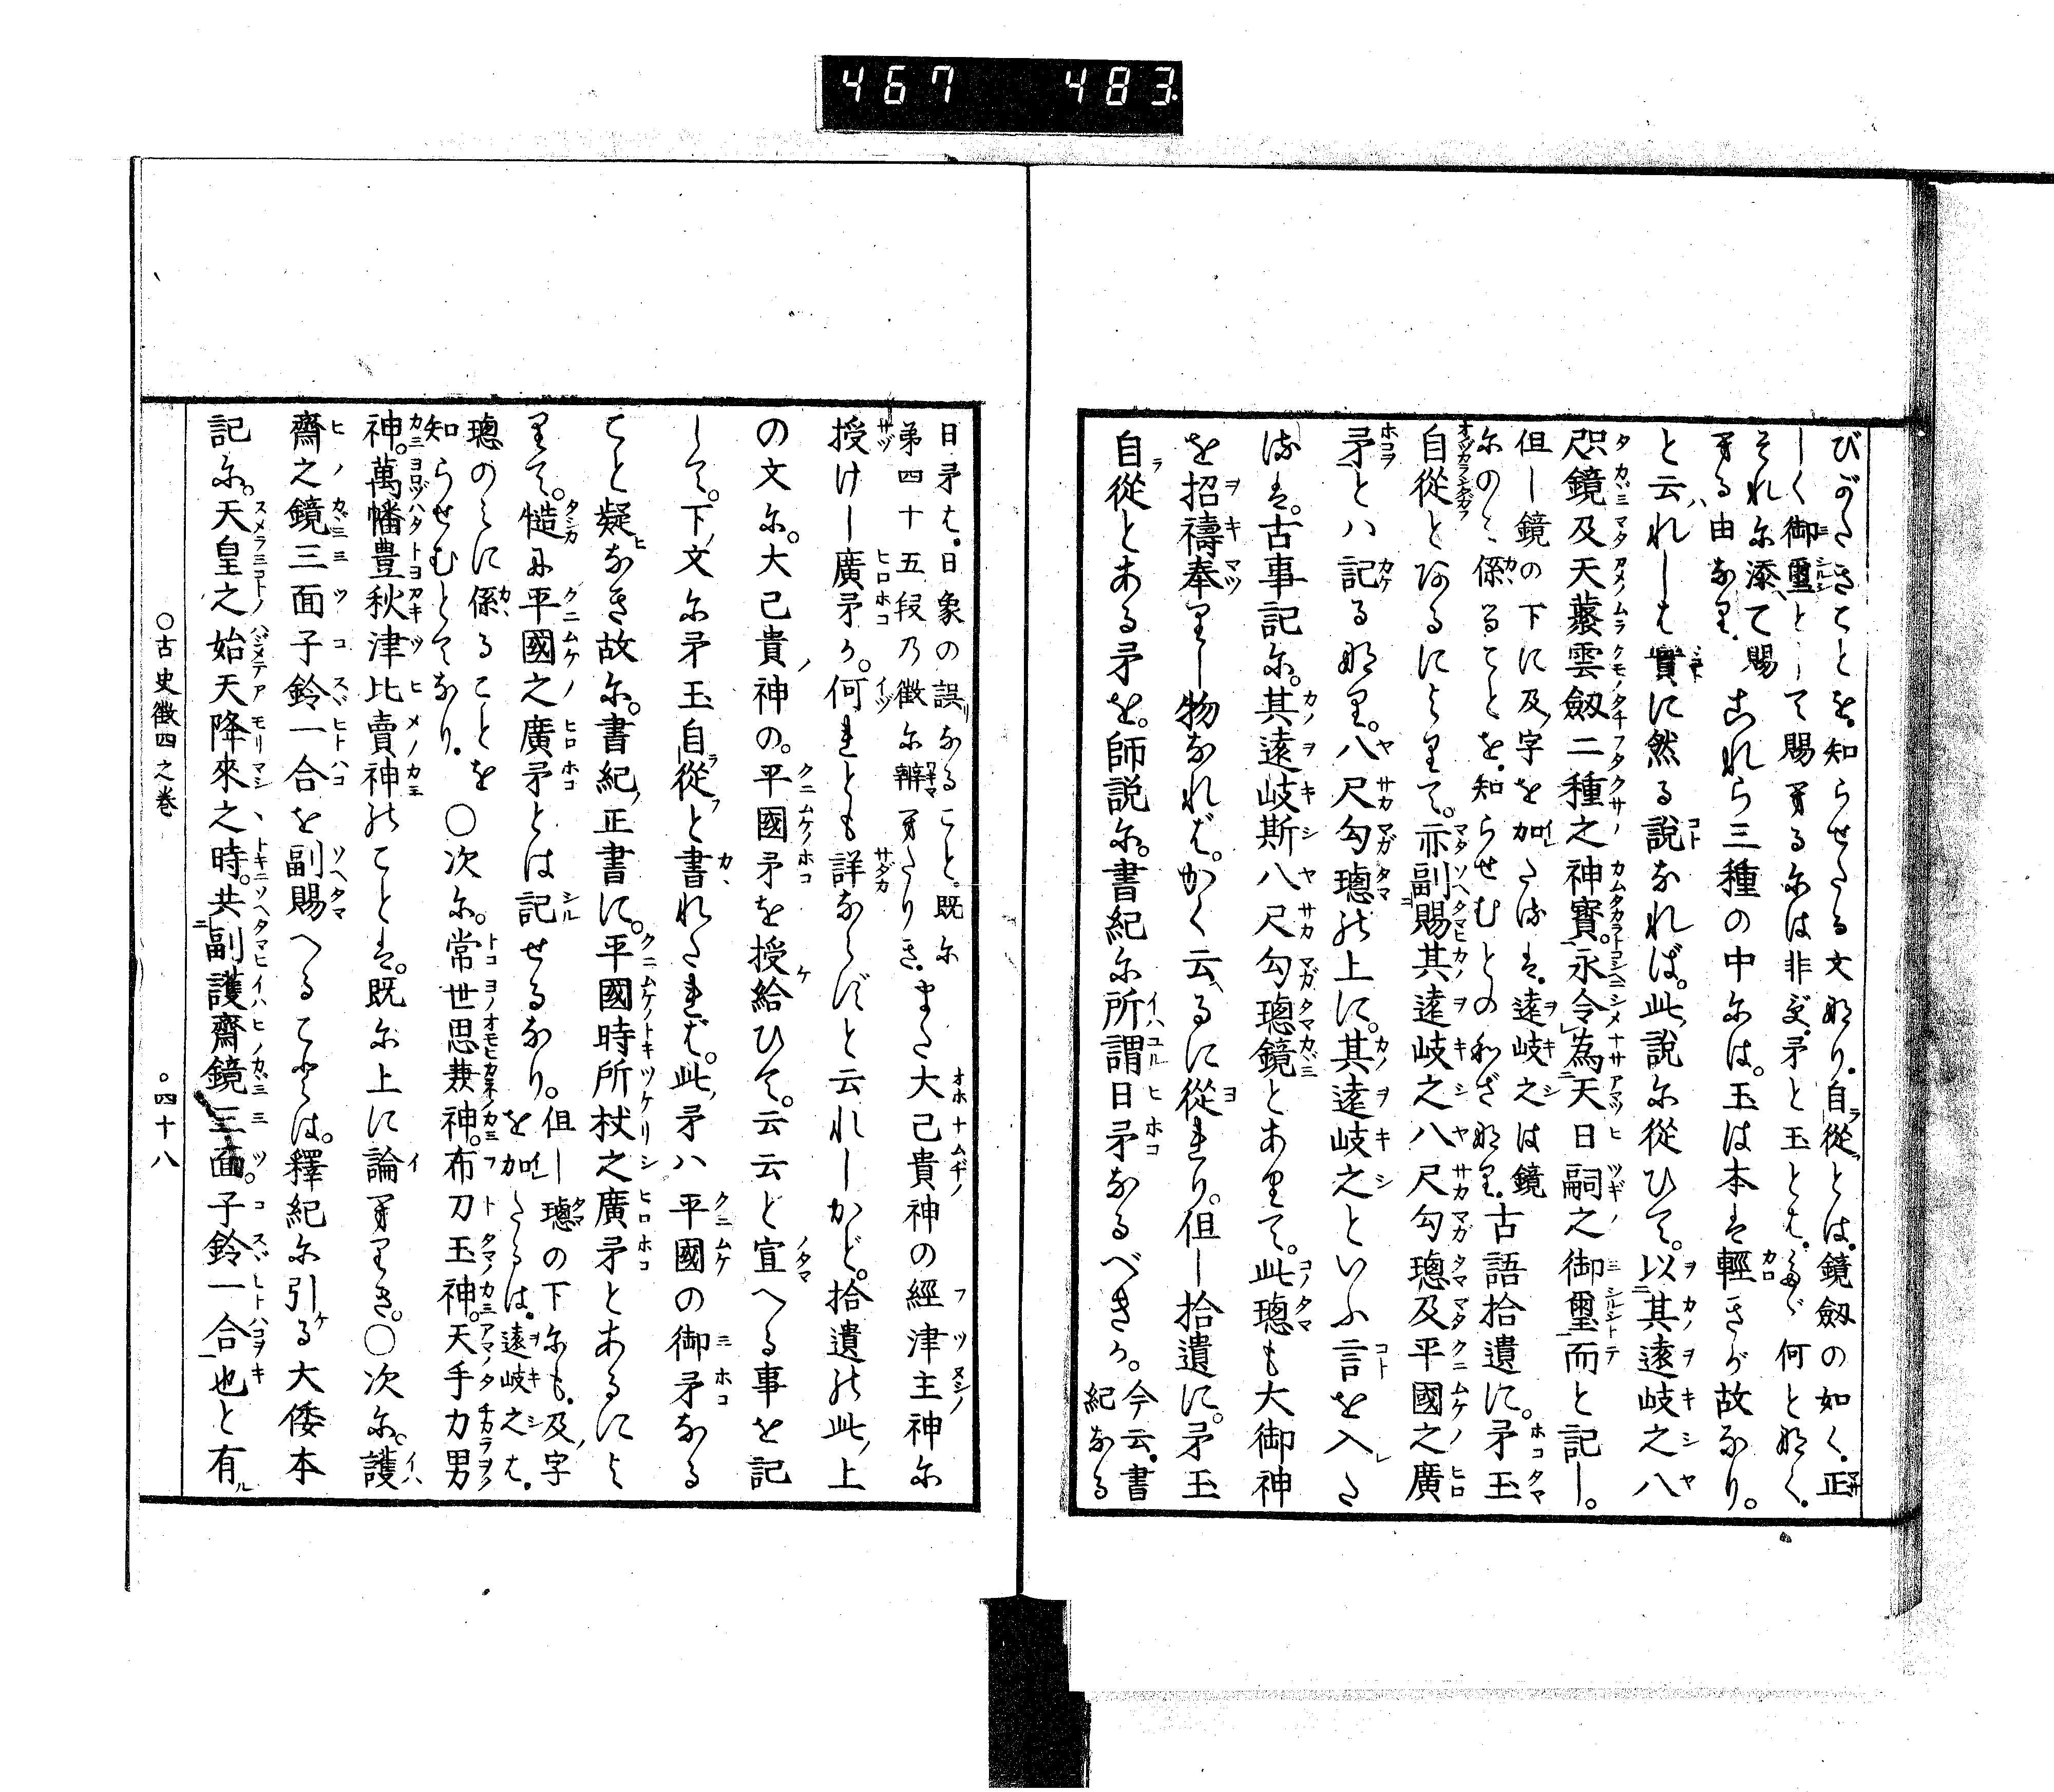 467 483
びがたきことを。知らせたる文なり。自從とは。鏡劔の如く。正
しく御璽として賜するには非ず。矛と玉とは。何となく。
それに添て賜
する由なり。これら三種の中には。玉は本は輕きが故なり。
と云れしは實に然る説なれば。此説に從ひて。以其遠岐之八
咫鏡及天叢雲劔二種之神寶。永令為天日嗣之御璽而と記し。
但し鏡の下に及字を加たるは。遠岐之は鏡
にのみ係ることを。知らせむとのわざなり。古語拾遺に。矛玉
自從とあるによりて。亦副賜其遠岐之八尺勾璁及平國之廣
矛とハ記るなり。八尺勾璁の上に。其遠岐之といふ言を入た
るは。古事記に。其遠岐斯八尺勾璁鏡とありて。此璁も大御神
を招禱奉りし物なれば。かく云るに從れり。但し拾遺に。矛玉
自從とある矛を。師説に。書紀に所謂日矛なるべきか。今云。書
紀なる
日矛は。日象の誤なること。既に
第四十五段乃徴に辯へたりき。また大己貴神の經津主神に
授けし廣矛か。何れとも詳ならずと云れしかど。拾遺の此上
の文に。大己貴神の。平國矛を授給ひて。云云と宣へる事を記
して。下文に矛玉自從と書れたれば。此矛ハ平國の御矛なる
こと疑なき故に。書紀正書に。平國時所杖之廣矛とあるによ
りて。慥に平國之廣矛とは記せるなり。但し璁の下にも。及字
を加たるは。遠岐之は。
璁のみに係ることを
知らせむとてなり。○次に。常世思兼神。布刀玉神。天手力男
神。萬幡豊秋津比賣神のことは。既に上に論へりき。○次に。護
齋之鏡三面子鈴一合を副賜へることは。釋紀に引る大倭本
記に。天皇之始天降來之時。共副護齋鏡三面。子鈴一合也と有
○古史徴四之巻
○四十八